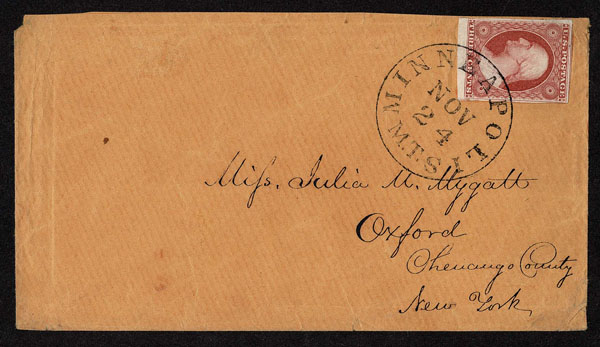 U.S. POSTAGE
THREE CENTS
MINNEAPOLIS
M.T.
NOV
24
Miss. Julia M. Mygatt
Oxford
Chenango County
New York